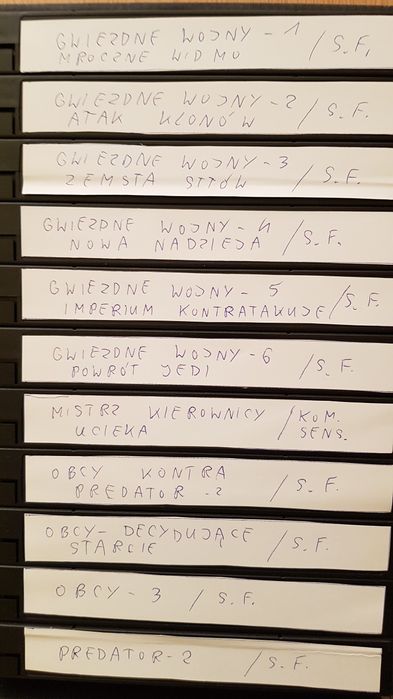 GWIEZDNE WOJNY - 1 / S.F.
MROCZNE WIDMO
GWIEZDNE WOJNY - 2 / S.F.
ATAK KLONÓW
GWIEZDNE WOJNY - 3 / S.F.
ZEMSTA SITÓW
GWIEZDNE WOJNY - 4 / S.F.
NOWA NADZIEJA
GWIEZDNE WOJNY - 5 / S.F.
IMPERIUM KONTRATAKUJE
GWIEZDNE WOJNY - 6 / S.F.
POWRÓT JEDI
MISTRZ KIEROWNICY / KOM.
UCIEKA SENS.
OBCY KONTRA / S.F.
PREDATOR - 2
OBCY - DECYDUJĄCE / S.F.
STARCIE
OBCY - 3 / S.F.
PREDATOR - 2 / S.F.